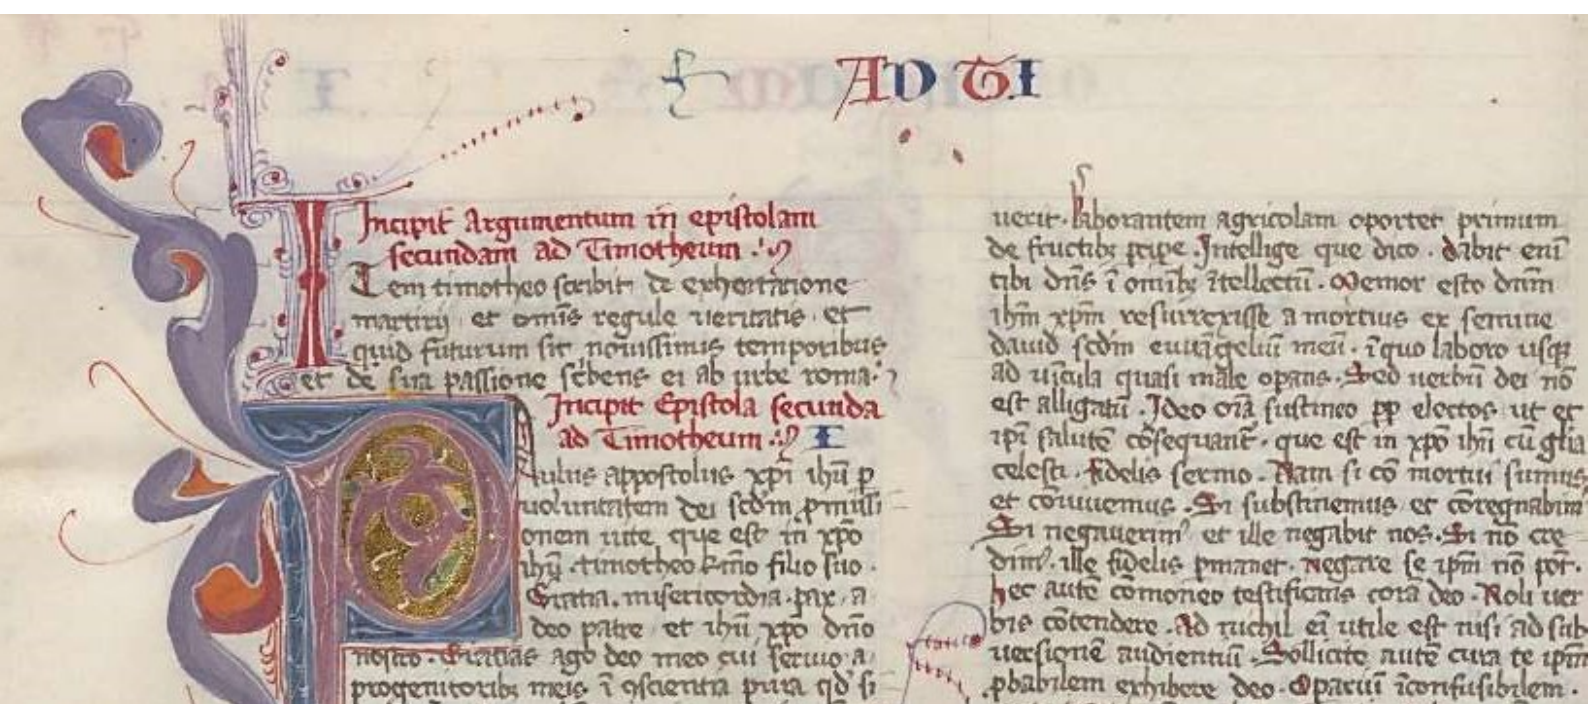 AD TI
Incipit Argumentum in epistolam
secundam ad Timotheum
Item timotheo scribit de exhortatione
martirij et om̄is regule ueritatis et
quid futurum sit nouissimis temporibus
et de sua passione sc̄bens ei ab urbe roma
Incipit Epistola secunda
ad Timotheum I
Paulus appostolus xp̄i ih̄u p
uoluntatem dei sc̄dm pmissi
onem uite que est in xp̄o
ih̄u timotheo k̄mo filio suo
Gratia. misericordia. pax. a
deo patre et ih̄u xp̄o dn̄o
nostro. Gratias ago deo meo cui seruio a
progenitorib; meis ī ꝯscientia pura qd̄ si
uerit. laborantem agricolam oportet primum
de fructib; pcipe. Intellige que dico. dabit enī
tibi dn̄s ī omīb; ītellectū. Memor esto dn̄m
ih̄m xp̄m resurrexisse a mortuis ex semine
dauid sc̄dm euuāgeliū meū. ī quo laboro usq;
ad uīcula quasi male opans. Sed uerbū dei nō
est alligatū. Ideo oīa sustineo pp electos ut et
ip̄i salutē cōsequant̄. que est in xp̄o ih̄u cū gl̄ia
celesti. fidelis sermo. Nam si cō mortui sumus
et conuiuemus. Si substinemus et cōregnabim
Si negauerim᾽ et ille negabit nos. Si nō cre
dim᾽. ille fidelis pmanet. Negare se ip̄m nō pōt.
hec autē cōmoneo testificans corā deo. Noli uer
bis cōtendere. Ad nichil ēi utile est nisi ad sub
uersionē audientiū. Sollicite autē cura te ip̄m
pbabilem exhibere deo. Opariū īconfusibilem.